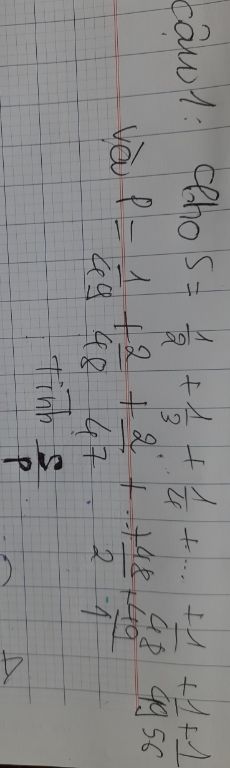 câu 1: cho S = 1/2 + 1/3 + 1/4 + ... + 1/48 + 1/49 + 1/50
và P = 1/49 + 2/48 + 2/47 + ... + 48/2 + 49/1
Tính S/P